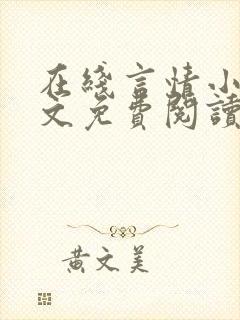 在綫言情小
文免費閱讀
黃文美